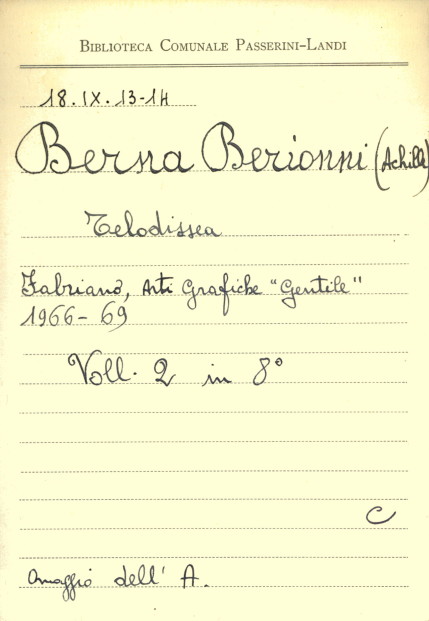 BIBLIOTECA COMUNALE PASSERINI-LANDI
18. IX. 13-14
Berna Berionni (Achille)
Telodissea
Fabriano, Arti Grafiche "Gentile"
1966-69
Voll. 2 in 8°
C
Omaggio dell' A.